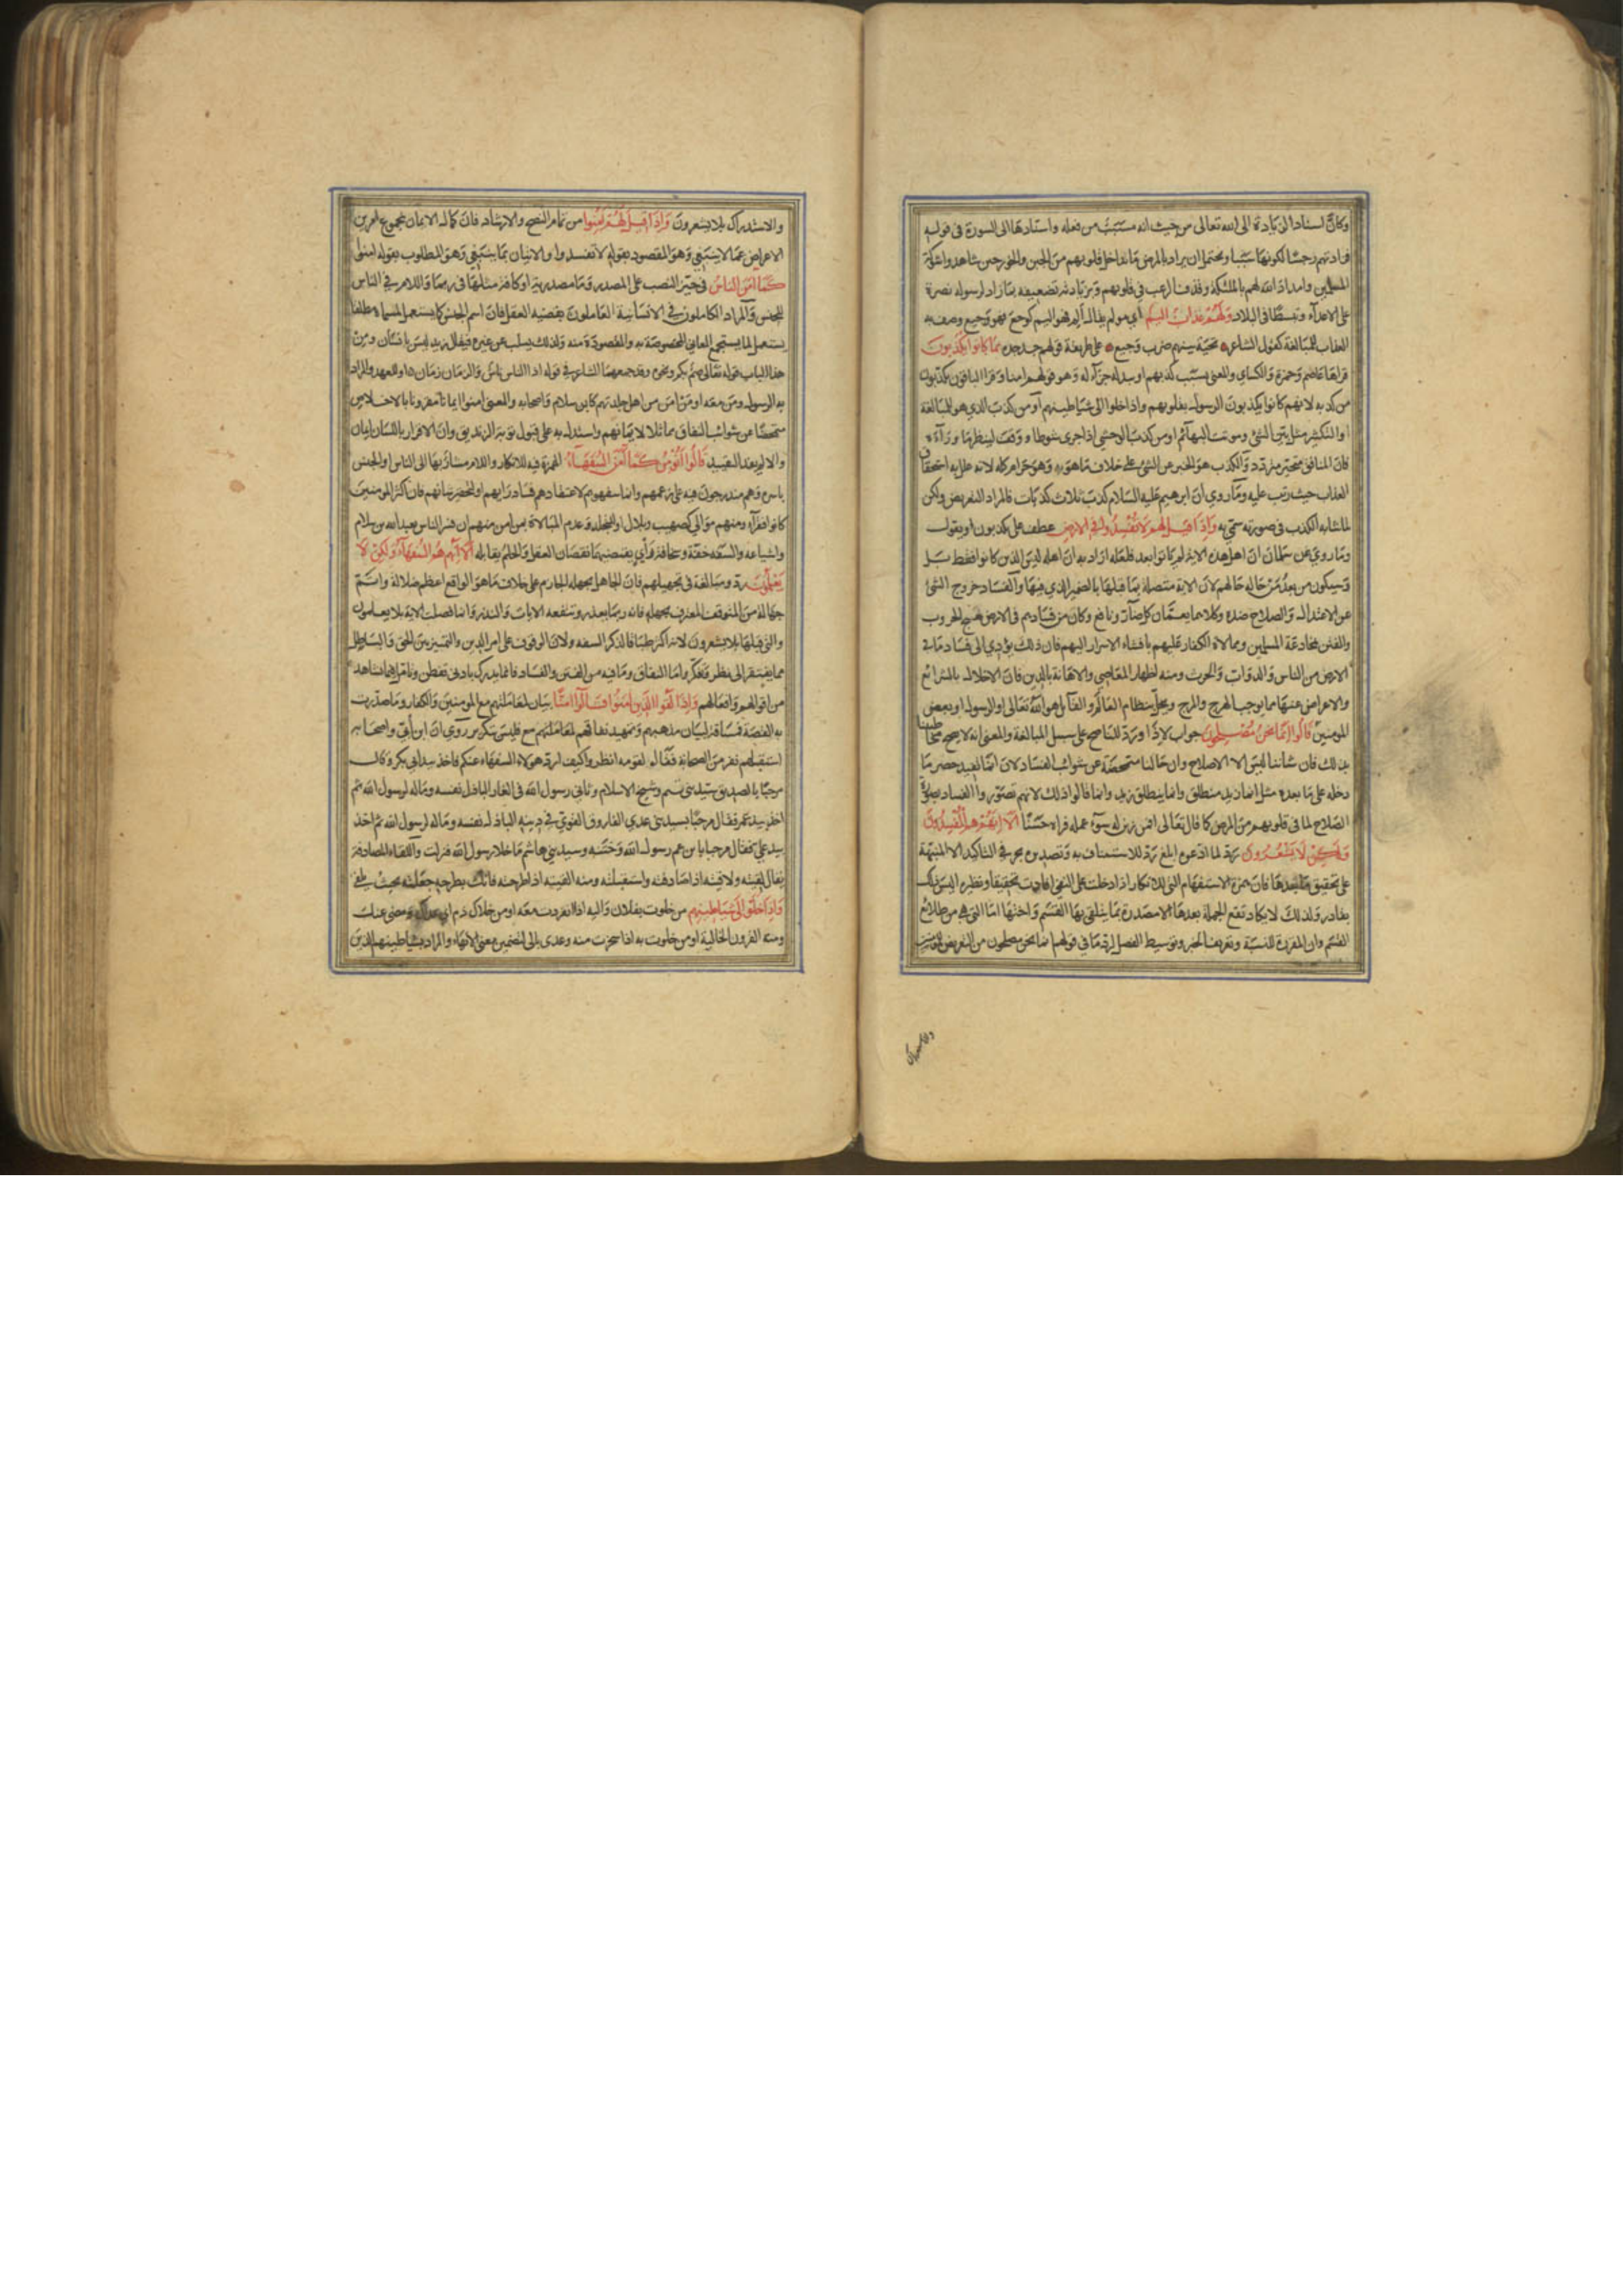 وكان اسناد الزيادة الى الله تعالى من حيث انه مسبب من فعله واسنادها الى السورة في قوله
فزادتهم رجسا لكونها سببا ويحتمل ان يراد بالمرض ما تداخل قلوبهم من الجبن والخور حين شاهدوا شوكة
المسلمين وامداد الله لهم بالملئكة وقذف الرعب في قلوبهم وبزيادته تضعيفه بما زاد لرسوله نصرة
على الاعداء وتبسطا في البلاد ولهم عذاب اليم اي مولم يقال الم فهو اليم كوجع فهو وجيع وصف به
العذاب للمبالغة كقول الشاعر تحية بينهم ضرب وجيع على طريقة قولهم جد جده بما كانوا يكذبون
قراها عاصم وحمزة والكسائي والمعنى بسبب كذبهم او ببدله جزاء له وهو قولهم امنا وقرا الباقون يكذبون
من كذبه لانهم كانوا يكذبون الرسول بقلوبهم واذا خلوا الى شياطينهم او من كذب الذي هو للمبالغة
او للتكثير مثل بين الشئ وموتت البهائم او من كذب الوحشي اذا جرى شوطا ووقف لينظر ما وراءه
فان المنافق متحير متردد والكذب هو الخبر عن الشئ على خلاف ما هو به وهو حرام كله لانه علل به استحقاق
العذاب حيث رتب عليه وما روي ان ابرهيم عليه السلام كذب ثلاث كذبات فالمراد التعريض ولكن
لما شابه الكذب في صورته سمي به واذا قيل لهم لا تفسدوا في الارض عطف على يكذبون او يقول
وما روي عن سلمان ان اهل هذه الاية لم ياتوا بعد فلعله اراد به ان اهله ليس الذين كانوا فقط بل
وسيكون من بعد من حاله حالهم لان الاية متصلة بما قبلها بالضمير الذي فيها والفساد خروج الشئ
عن الاعتدال والصلاح ضده وكلاهما يعمان كل ضار ونافع وكان من فسادهم في الارض هيج الحروب
والفتن بمخادعة المسلمين وممالاة الكفار عليهم بافشاء الاسرار اليهم فان ذلك يؤدي الى فساد ما في
الارض من الناس والدواب والحرث ومنه اظهار المعاصي والاهانة بالدين فان الاخلال بالشرائع
والاعراض عنها مما يوجب الهرج والمرج ويخل بنظام العالم والقائل هو الله تعالى او الرسول او بعض
المومنين قالوا انما نحن مصلحون جواب لاذا ورد للناصح على سبيل المبالغة والمعنى انه لا يصح مخاطبتنا
بذلك فان شاننا ليس الا الاصلاح وان حالنا متمحضة عن شوائب الفساد لان انما يفيد حصر ما
دخله على ما بعده مثل انما زيد منطلق وانما ينطلق زيد وانما قالوا ذلك لانهم تصوروا الفساد بصورة
الصلاح لما في قلوبهم من المرض كما قال تعالى افمن زين له سوء عمله فراه حسنا الا انهم هم المفسدون
ولكن لا يشعرون رد لما ادعوه ابلغ رد للاستئناف به وتصديره بحرفي التاكيد الا المنبهة
على تحقيق ما بعدها فان همزة الاستفهام التي للانكار اذا دخلت على النفي افادت تحقيقا ونظيره اليس ذلك
بقادر ولذلك لا يكاد تقع الجملة بعدها الا مصدرة بما يتلقى بها القسم واختها اما التي هي من طلائع
القسم وان المقررة للنسبة وتعريف الخبر وتوسيط الفصل لرد ما في قولهم انما نحن مصلحون من التعريض للمومنين
والاستدراك
والاستدراك بلا يشعرون واذا قيل لهم امنوا من تمام النصح والارشاد فان كمال الايمان بمجموع امرين
الاعراض عما لا ينبغي وهو المقصود بقوله لا تفسدوا والاتيان بما ينبغي وهو المطلوب بقوله امنوا
كما امن الناس في حيز النصب على المصدر وما مصدرية او كافة مثلها في ربما واللام في الناس
للجنس والمراد الكاملون في الانسانية العاملون بقضية العقل فان اسم الجنس كما يستعمل لمسماه مطلقا
يستعمل لما يستجمع المعاني المخصوصة به والمقصودة منه ولذلك يسلب عن غيره فيقال زيد ليس بانسان ومن
هذا الباب قوله تعالى صم بكم ونحوه وقد جمعهما الشاعر في قوله اذ الناس ناس والزمان زمان او للعهد والمراد
به الرسول ومن معه او من امن من اهل جلدتهم كابن سلام واصحابه والمعنى امنوا ايمانا مقرونا بالاخلاص
متمحضا عن شوائب النفاق مماثلا لايمانهم واستدل به على قبول توبة الزنديق وان الاقرار باللسان ايمان
والا لم يفد التقييد قالوا انؤمن كما امن السفهاء الهمزة فيه للانكار واللام مشار بها الى الناس او الجنس
باسره وهم مندرجون فيه على زعمهم وانما سفهوهم لاعتقادهم فساد رايهم او لتحقير شانهم فان اكثر المومنين
كانوا فقراء ومنهم موالي كصهيب وبلال او للتجلد وعدم المبالاة بمن امن منهم ان فسر الناس بعبد الله بن سلام
واشياعه والسفه خفة وسخافة راي يقتضيهما نقصان العقل والحلم يقابله الا انهم هم السفهاء ولكن لا
يعلمون رد ومبالغة في تجهيلهم فان الجاهل بجهله الجازم على خلاف ما هو الواقع اعظم ضلالة واتم
جهالة من المتوقف المعترف بجهله فانه ربما يعذر وتنفعه الايات والنذر وانما فصلت الاية بلا يعلمون
والتي قبلها بلا يشعرون لانه اكثر طباقا لذكر السفه ولان الوقوف على امر الدين والتمييز بين الحق والباطل
مما يفتقر الى نظر وتفكر واما النفاق وما فيه من الفتن والفساد فانما يدرك بادنى تفطن وتامل فيما يشاهد
من اقوالهم وافعالهم واذا لقوا الذين امنوا قالوا امنا بيان لمعاملتهم مع المومنين والكفار وما صدرت
به القصة فمساقه لبيان مذهبهم وتمهيد نفاقهم فليس بتكرير روي ان ابن ابي واصحابه
استقبلهم نفر من الصحابة فقال لقومه انظروا كيف ارد هولاء السفهاء عنكم فاخذ بيد ابي بكر وقال
مرحبا بالصديق سيد بني تيم وشيخ الاسلام وثاني رسول الله في الغار الباذل نفسه وماله لرسول الله ثم
اخذ بيد عمر فقال مرحبا بسيد بني عدي الفاروق القوي في دينه الباذل نفسه وماله لرسول الله ثم اخذ
بيد علي فقال مرحبا يا بن عم رسول الله وختنه وسيد بني هاشم ما خلا رسول الله فنزلت واللقاء المصادفة
يقال لقيته ولاقيته اذا صادفته واستقبلته ومنه القيته اذا طرحته فانك بطرحه جعلته بحيث يلقى
واذا خلوا الى شياطينهم من خلوت بفلان واليه اذا انفردت معه او من خلاك ذم اي عداك ومضى عنك
ومنه القرون الخالية او من خلوت به اذا سخرت منه وعدي بالى لتضمين معنى الانهاء والمراد بشياطينهم الذين